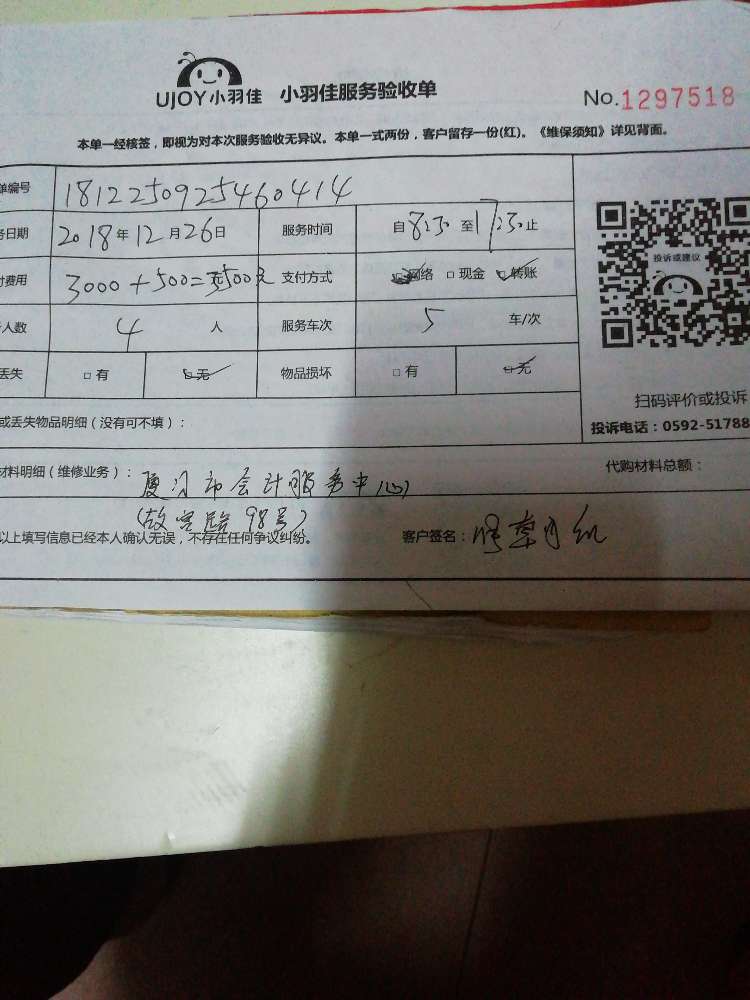 UJOY小羽佳 小羽佳服务验收单
No.1297518
本单一经核签，即视为对本次服务验收无异议。本单一式两份，客户留存一份(红)。《维保须知》详见背面。
单编号 1812250925460414
务日期 2018年12月26日 服务时间 自8:30至17:30止
付费用 3000+500=3500元 支付方式 网络 □现金 转账
人数 4人 服务车次 5 车/次
丢失 □有 □无 物品损坏 □有 □无
投诉或建议
扫码评价或投诉
投诉电话：0592-51788
或丢失物品明细（没有可不填）：
材料明细（维修业务）： 厦门市会计服务中心 代购材料总额：
(故宫路98号)
以上填写信息已经本人确认无误，不存在任何争议纠纷。 客户签名：